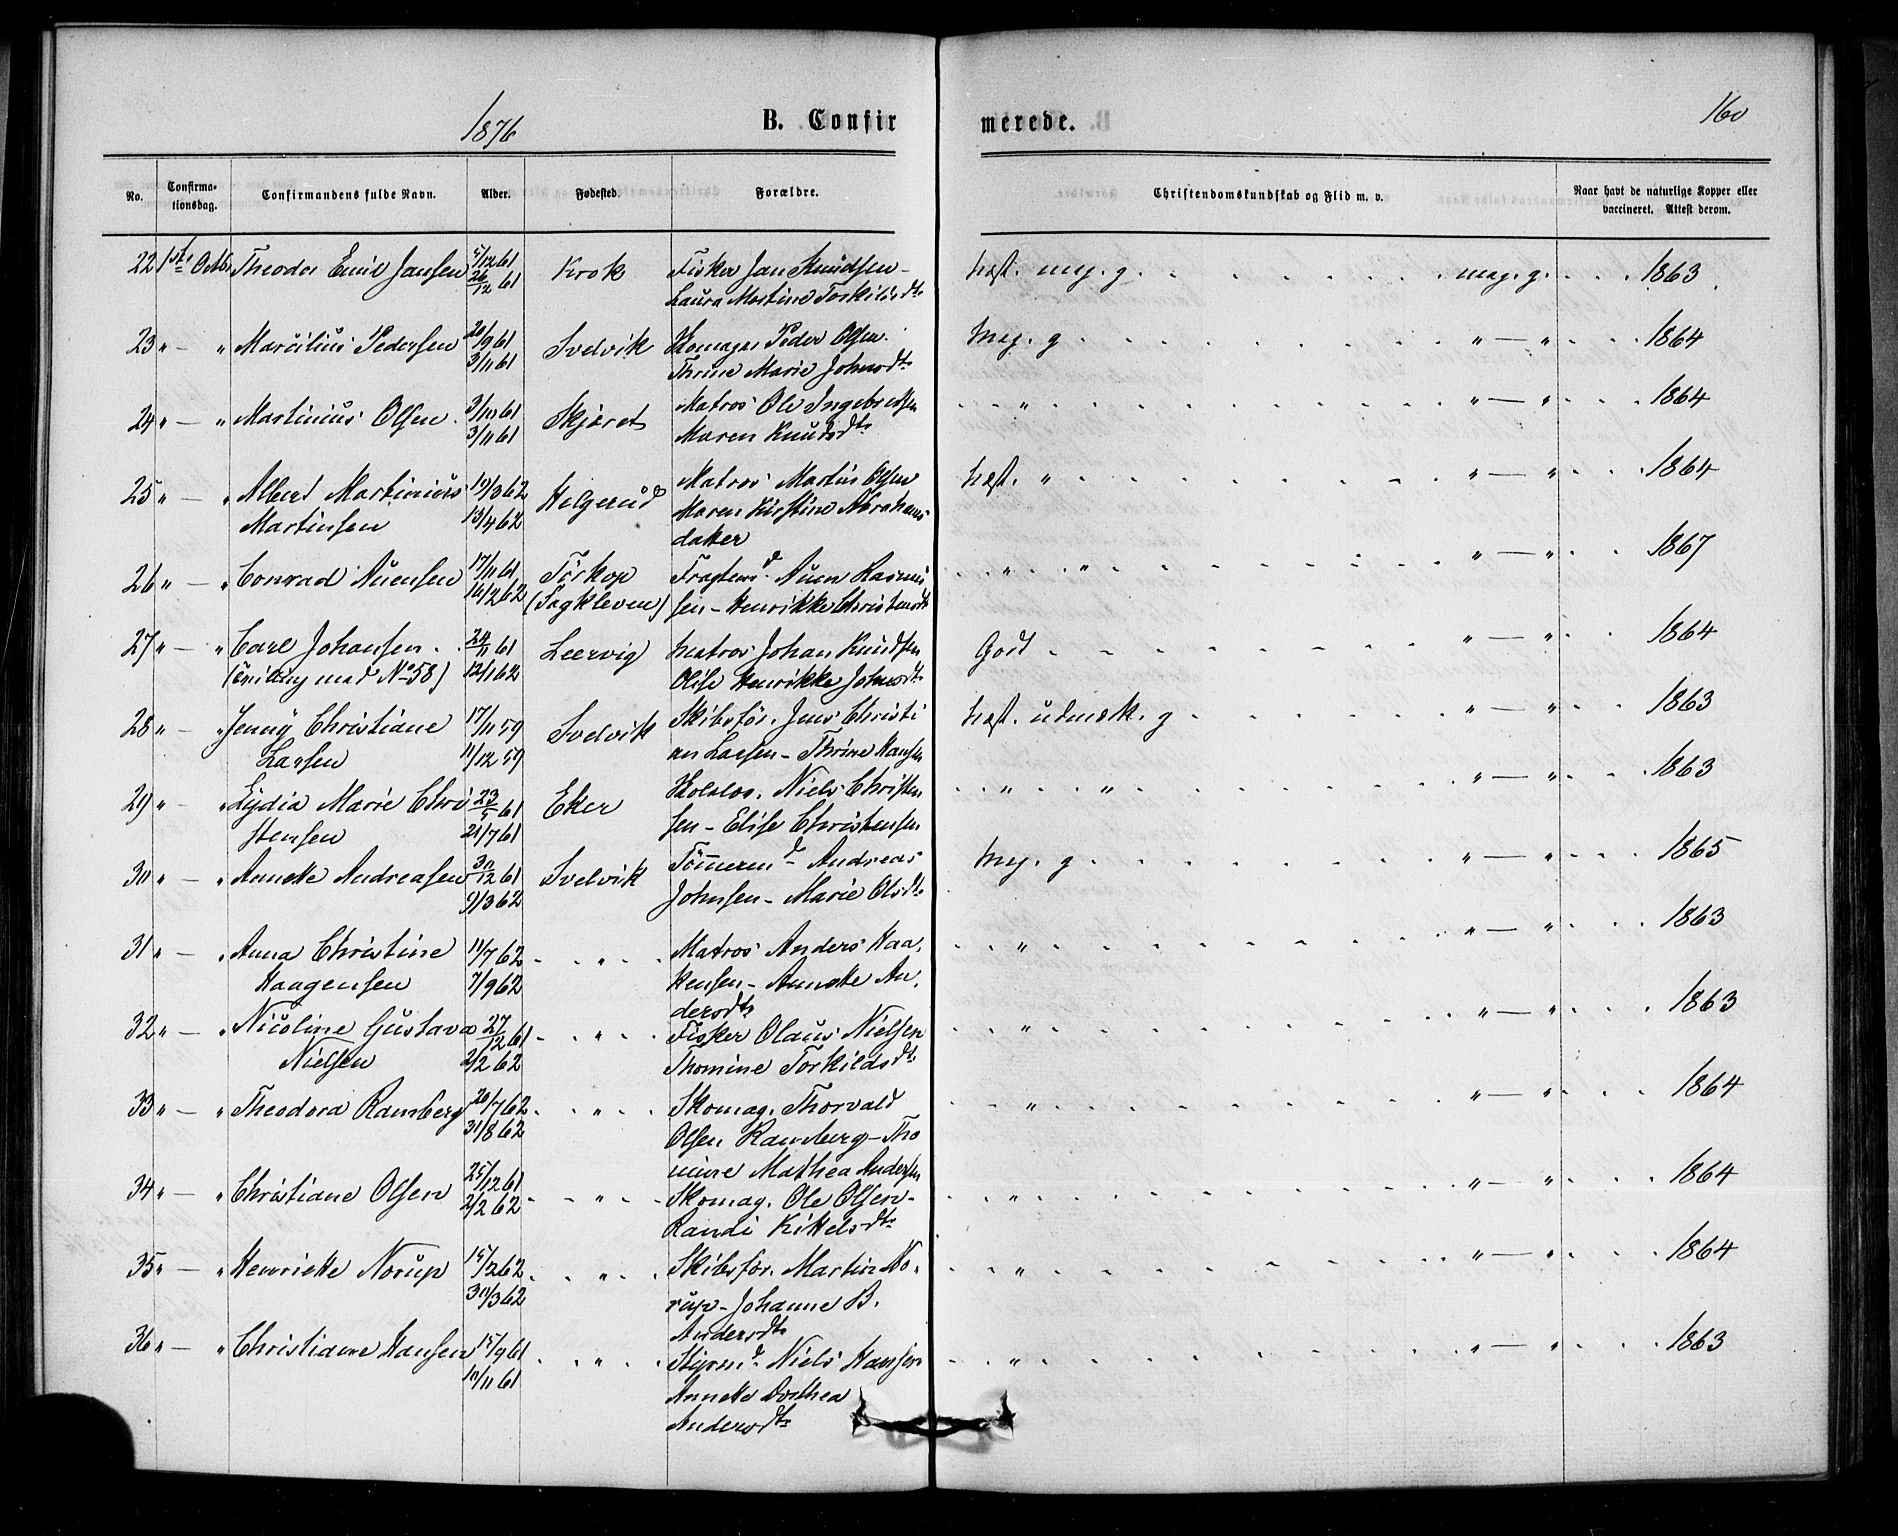 1876
B. Confir
merede.
160
No.
Confirma-
tionsdag.
Confirmandens fulde Navn.
Alder.
Fødested.
Forældre.
Christendomskundskab og Flid m. v.
Naar havt de naturlige Kopper eller
vaccineret. Attest derom.
22 1ste Octbr Theodor Emil Jansen 5/12 61 Krok Fisker Jan Knudsen - næst. meg. g. meg. g. 1863
26/12 61 Laura Martine Torkildsdtr
23 " — " Marcilius Pedersen 20/9 61 Svelvik Skomager Peder Olsen. Meg. g " — " 1864
3/11 61 Thrine Marie Johnsdtr
24 " — " Martinius Olsen 3/10 61 Skjøret Matros Ole Ingebretsen " " — " 1864
3/11 61 Maren Knudsdtr
25 " — " Albert Martinius 19/3 62 Helgerud Matros Martin Olsen næst. " " — " 1864
Martinsen 13/4 62 Maren Kirstine Abrahams
datter
26 " — " Conrad Auensen 17/11 61 Tørkop Fragtemd. Auen Rasmus " " " — " 1867
16/2 62 (Sagkleven) sen - Henrikke Christensdtr
27 " — " Carl Johansen 24/11 61 Leervig Matros Johan Knudsen Godt " — " 1864
(Tvilling med No 58) 12/1 62 Olise Henrikke Johnsdtr
28 " — " Jenny Christiane 17/11 59 Svelvik Skibsfør. Jens Christi næst. udmærk. g " — " 1863
Larsen 11/12 59 an Larsen - Thrine Hansen
29 " — " Lydia Marie Chri 23/5 61 Eker Niels Christen " " " — " 1863
stensen 21/7 61 sen - Elise Christensen
30 " — " Annette Andreasen 30/12 61 Svelvik Tømmermd. Andreas Meg. g " — " 1865
9/3 62 Johnsen - Marie Olsdtr
31 " — " Anna Christine 11/7 62 " Matros Anders Haa " " — " 1863
Haagensen 7/9 62 kensen - Annette An
dersdtr
32 " — " Nicoline Gustava 27/12 61 " Fisker Olaus Nielsen " " — " 1863
Nielsen 2/2 62 Thomine Torkildsdtr
33 " — " Theodora Ramberg 20/7 62 " Skomag. Thorvald " " — " 1864
31/8 62 Olsen Ramberg - Tho
mine Mathea Andersen
34 " — " Christiane Olsen 25/12 61 " Skomag. Ole Olsen - " " — " 1864
2/2 62 Randi Kittelsdtr
35 " — " Henriette Norup 15/2 62 " Skibsfør. Martin No " " — " 1864
30/3 62 rup - Johanne B.
Andersdtr
36 " — " Christiane Hansen 15/9 61 " Styrmd. Niels Hansen " " — " 1863
10/11 61 Annette Dorthea
Andersdtr